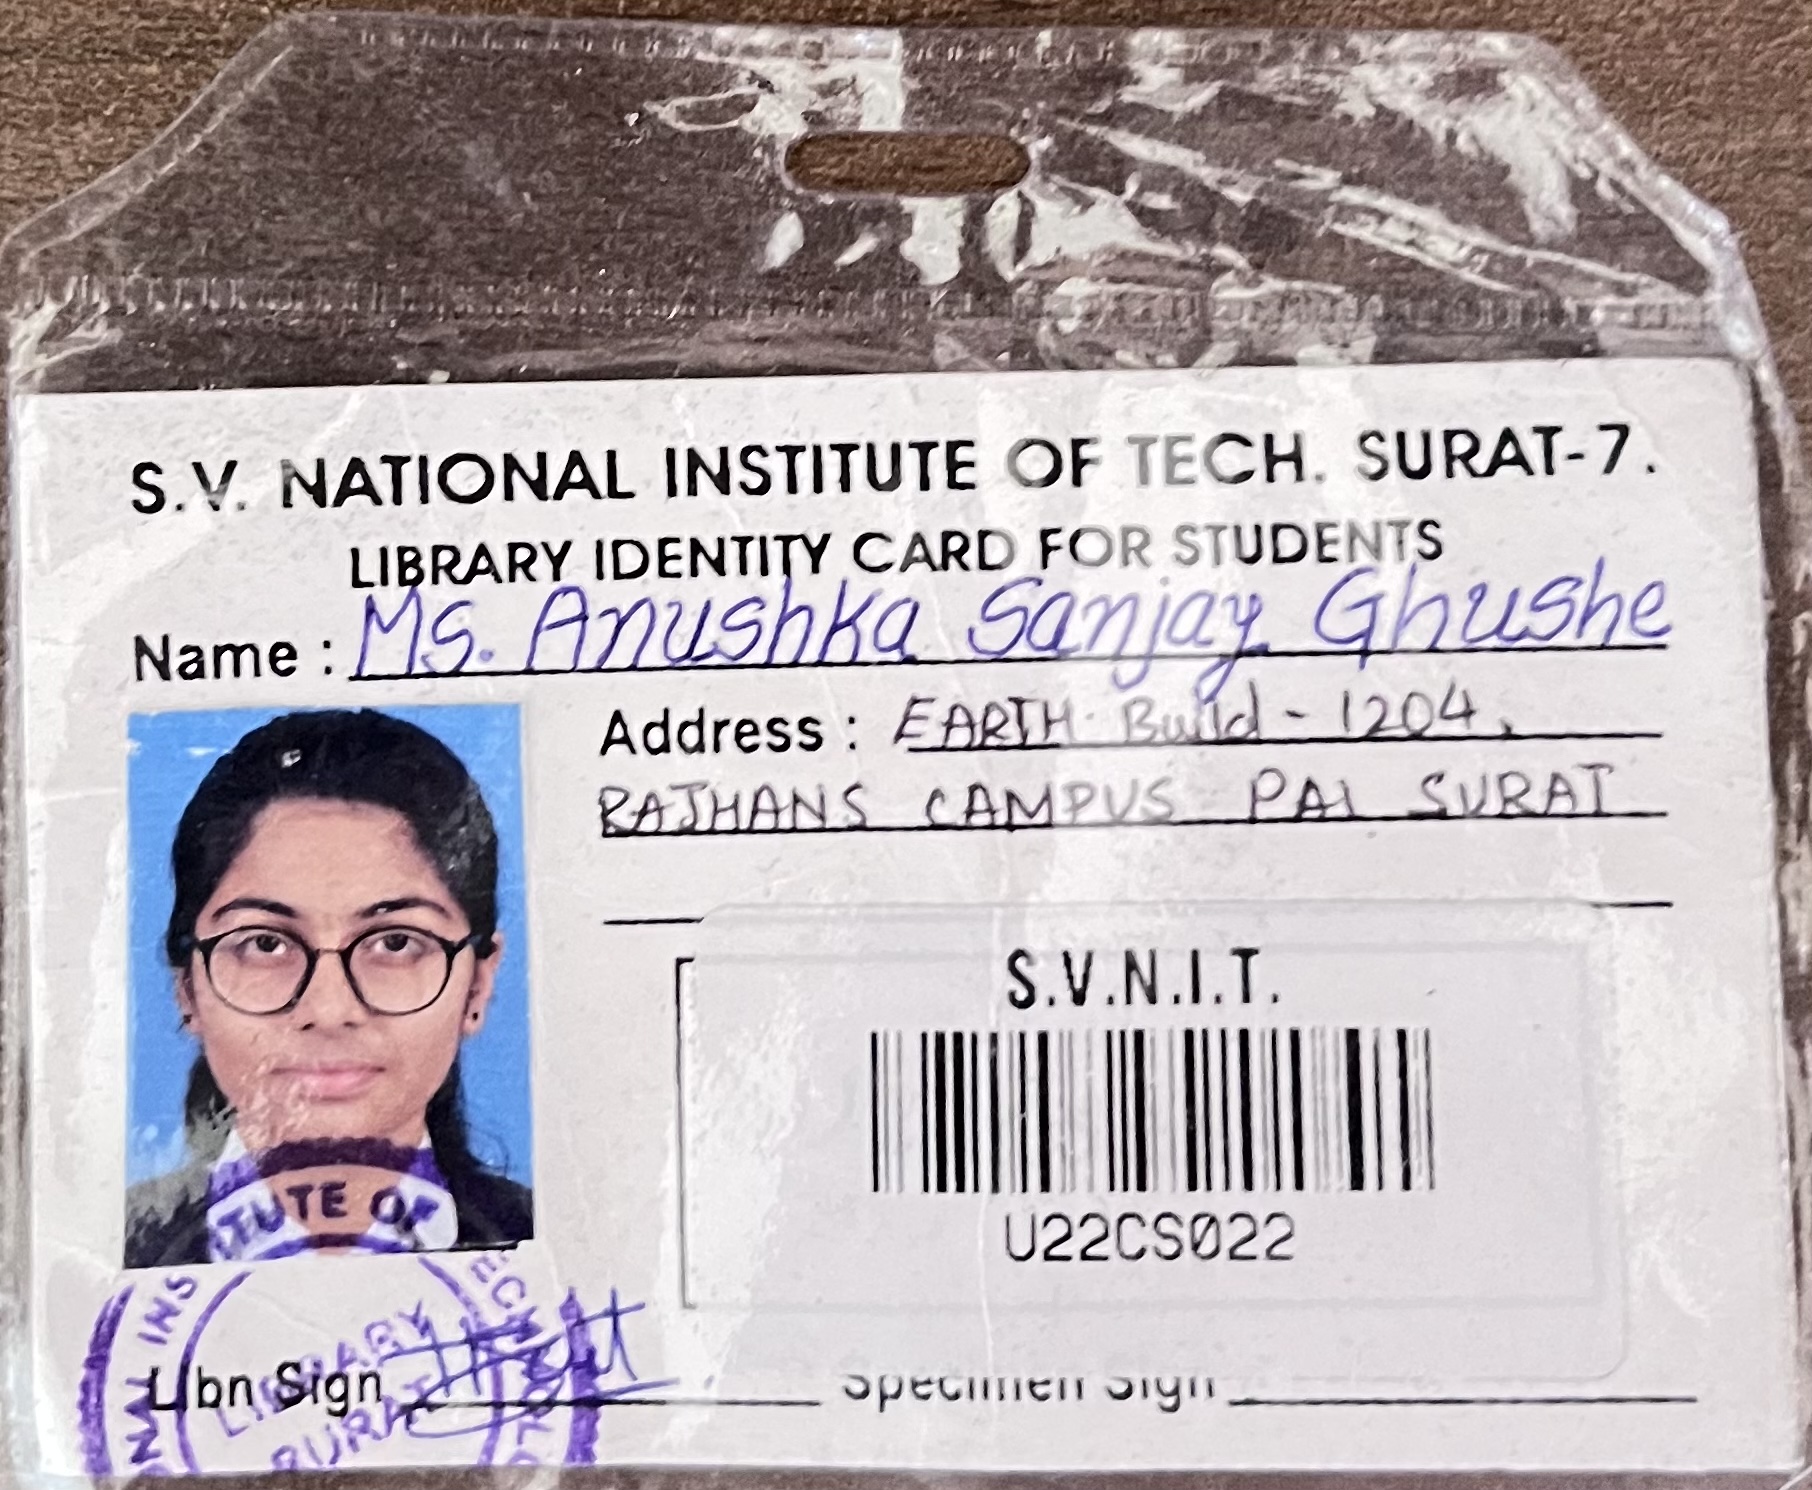 S.V. NATIONAL INSTITUTE OF TECH. SURAT-7.
LIBRARY IDENTITY CARD FOR STUDENTS
Name : Ms. Anushka Sanjay Ghushe
Address : EARTH Build - 1204,
RAJHANS CAMPUS PAL SURAT
S.V.N.I.T.
U22CS022
TUTE OF
NAL INS
TECHNOLO
LIBRARY
SURAT
Libn Sign
Specimen Sign